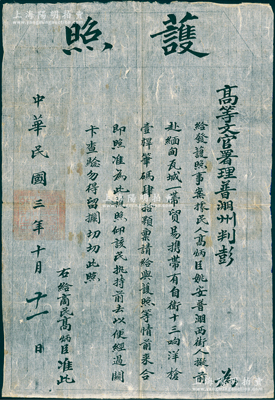 護照
高等文官署理普淜州判彭 為
給發護照事案據民人高炳臣姚安普淜西街人擬前
赴緬甸瓦城一帶貿易携帶有自衛十三响洋槍
壹稈筆碼肆拾顆禀請給與護照等情前來合
即照准為此護照仰該民执持前去以便經過關
卡查驗勿得留攔切切此照
右給商民髙炳臣准此
中華民國三年十月十一日